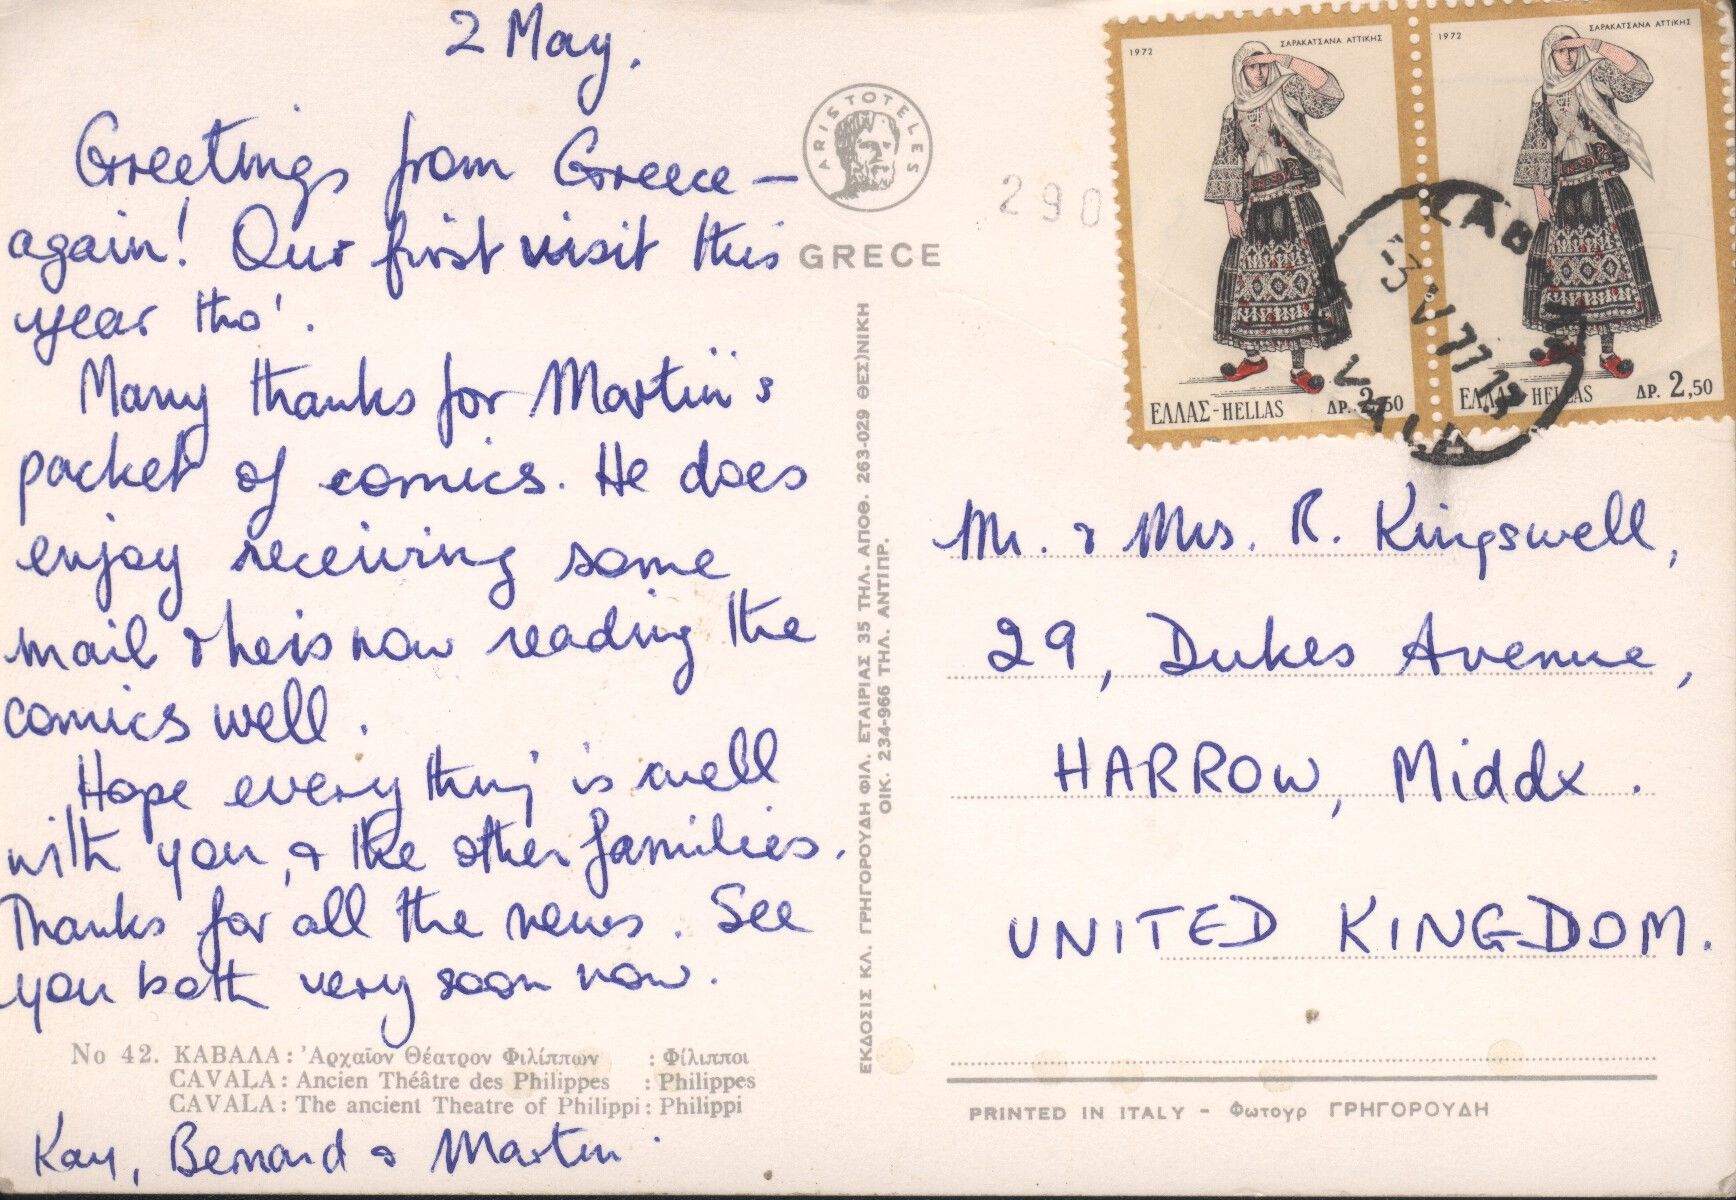 2 May.
Greetings from Greece —
again! Our first visit this
year tho'.
Many thanks for Martin's
packet of comics. He does
enjoy receiving some
mail & he is now reading the
comics well.
Hope everything is well
with you, & the other families.
Thanks for all the news. See
you both very soon now.
No 42. ΚΑΒΑΛΑ: Ἀρχαῖον Θέατρον Φιλίππων : Φίλιπποι
CAVALA: Ancien Théâtre des Philippes : Philippes
CAVALA: The ancient Theatre of Philippi: Philippi
Kay, Bernard & Martin.
ARISTOTELES
GRECE
ΕΚΔΟΣΙΣ ΚΛ. ΓΡΗΓΟΡΟΥΔΗ ΦΙΛ. ΕΤΑΙΡΙΑΣ 35 ΤΗΛ. ΑΠΟΘ. 263-029 ΘΕΣ)ΝΙΚΗ
ΟΙΚ. 234-966 ΤΗΛ. ΑΝΤΙΠΡ.
290
1972 ΣΑΡΑΚΑΤΣΑΝΑ ΑΤΤΙΚΗΣ
ΕΛΛΑΣ-HELLAS ΔΡ. 2,50
1972 ΣΑΡΑΚΑΤΣΑΝΑ ΑΤΤΙΚΗΣ
ΕΛΛΑΣ HELLAS ΔΡ. 2,50
3 V 77 13
Mr. & Mrs. R. Kingswell,
29, Dukes Avenue,
HARROW, Middx.
UNITED KINGDOM.
PRINTED IN ITALY - Φωτογρ ΓΡΗΓΟΡΟΥΔΗ